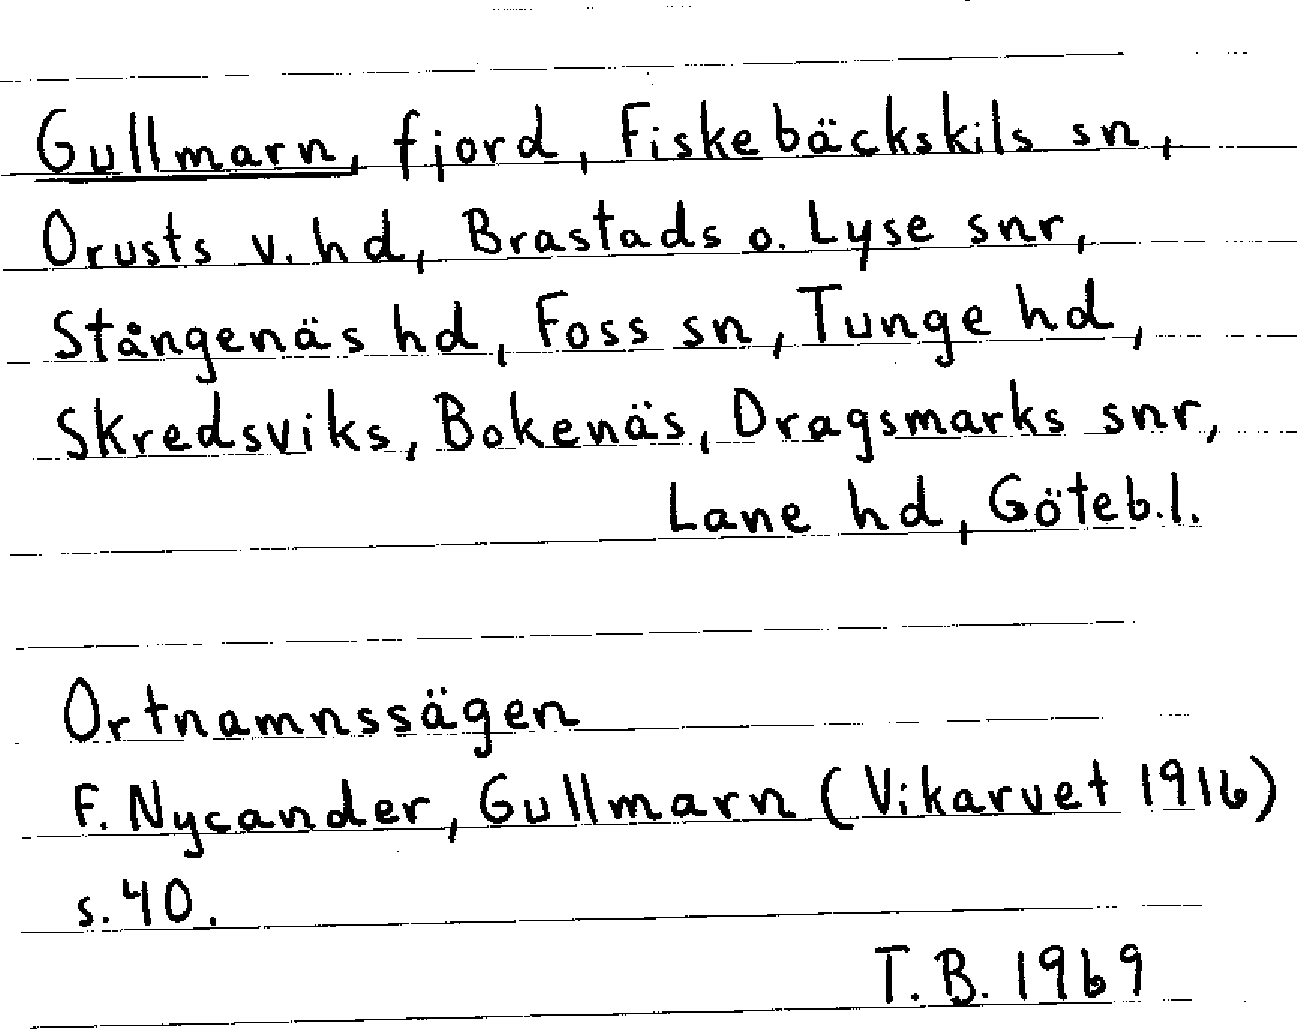 Gullmarn, fjord, Fiskebäckskils sn,
Orusts v. hd, Brastads o. Lyse snr,
Stångenäs hd, Foss sn, Tunge hd,
Skredsviks, Bokenäs, Dragsmarks snr,
Lane hd, Göteb.l.
Ortnamnssägen
F. Nycander, Gullmarn (Vikarvet 1916)
s. 40.
T.B. 1969